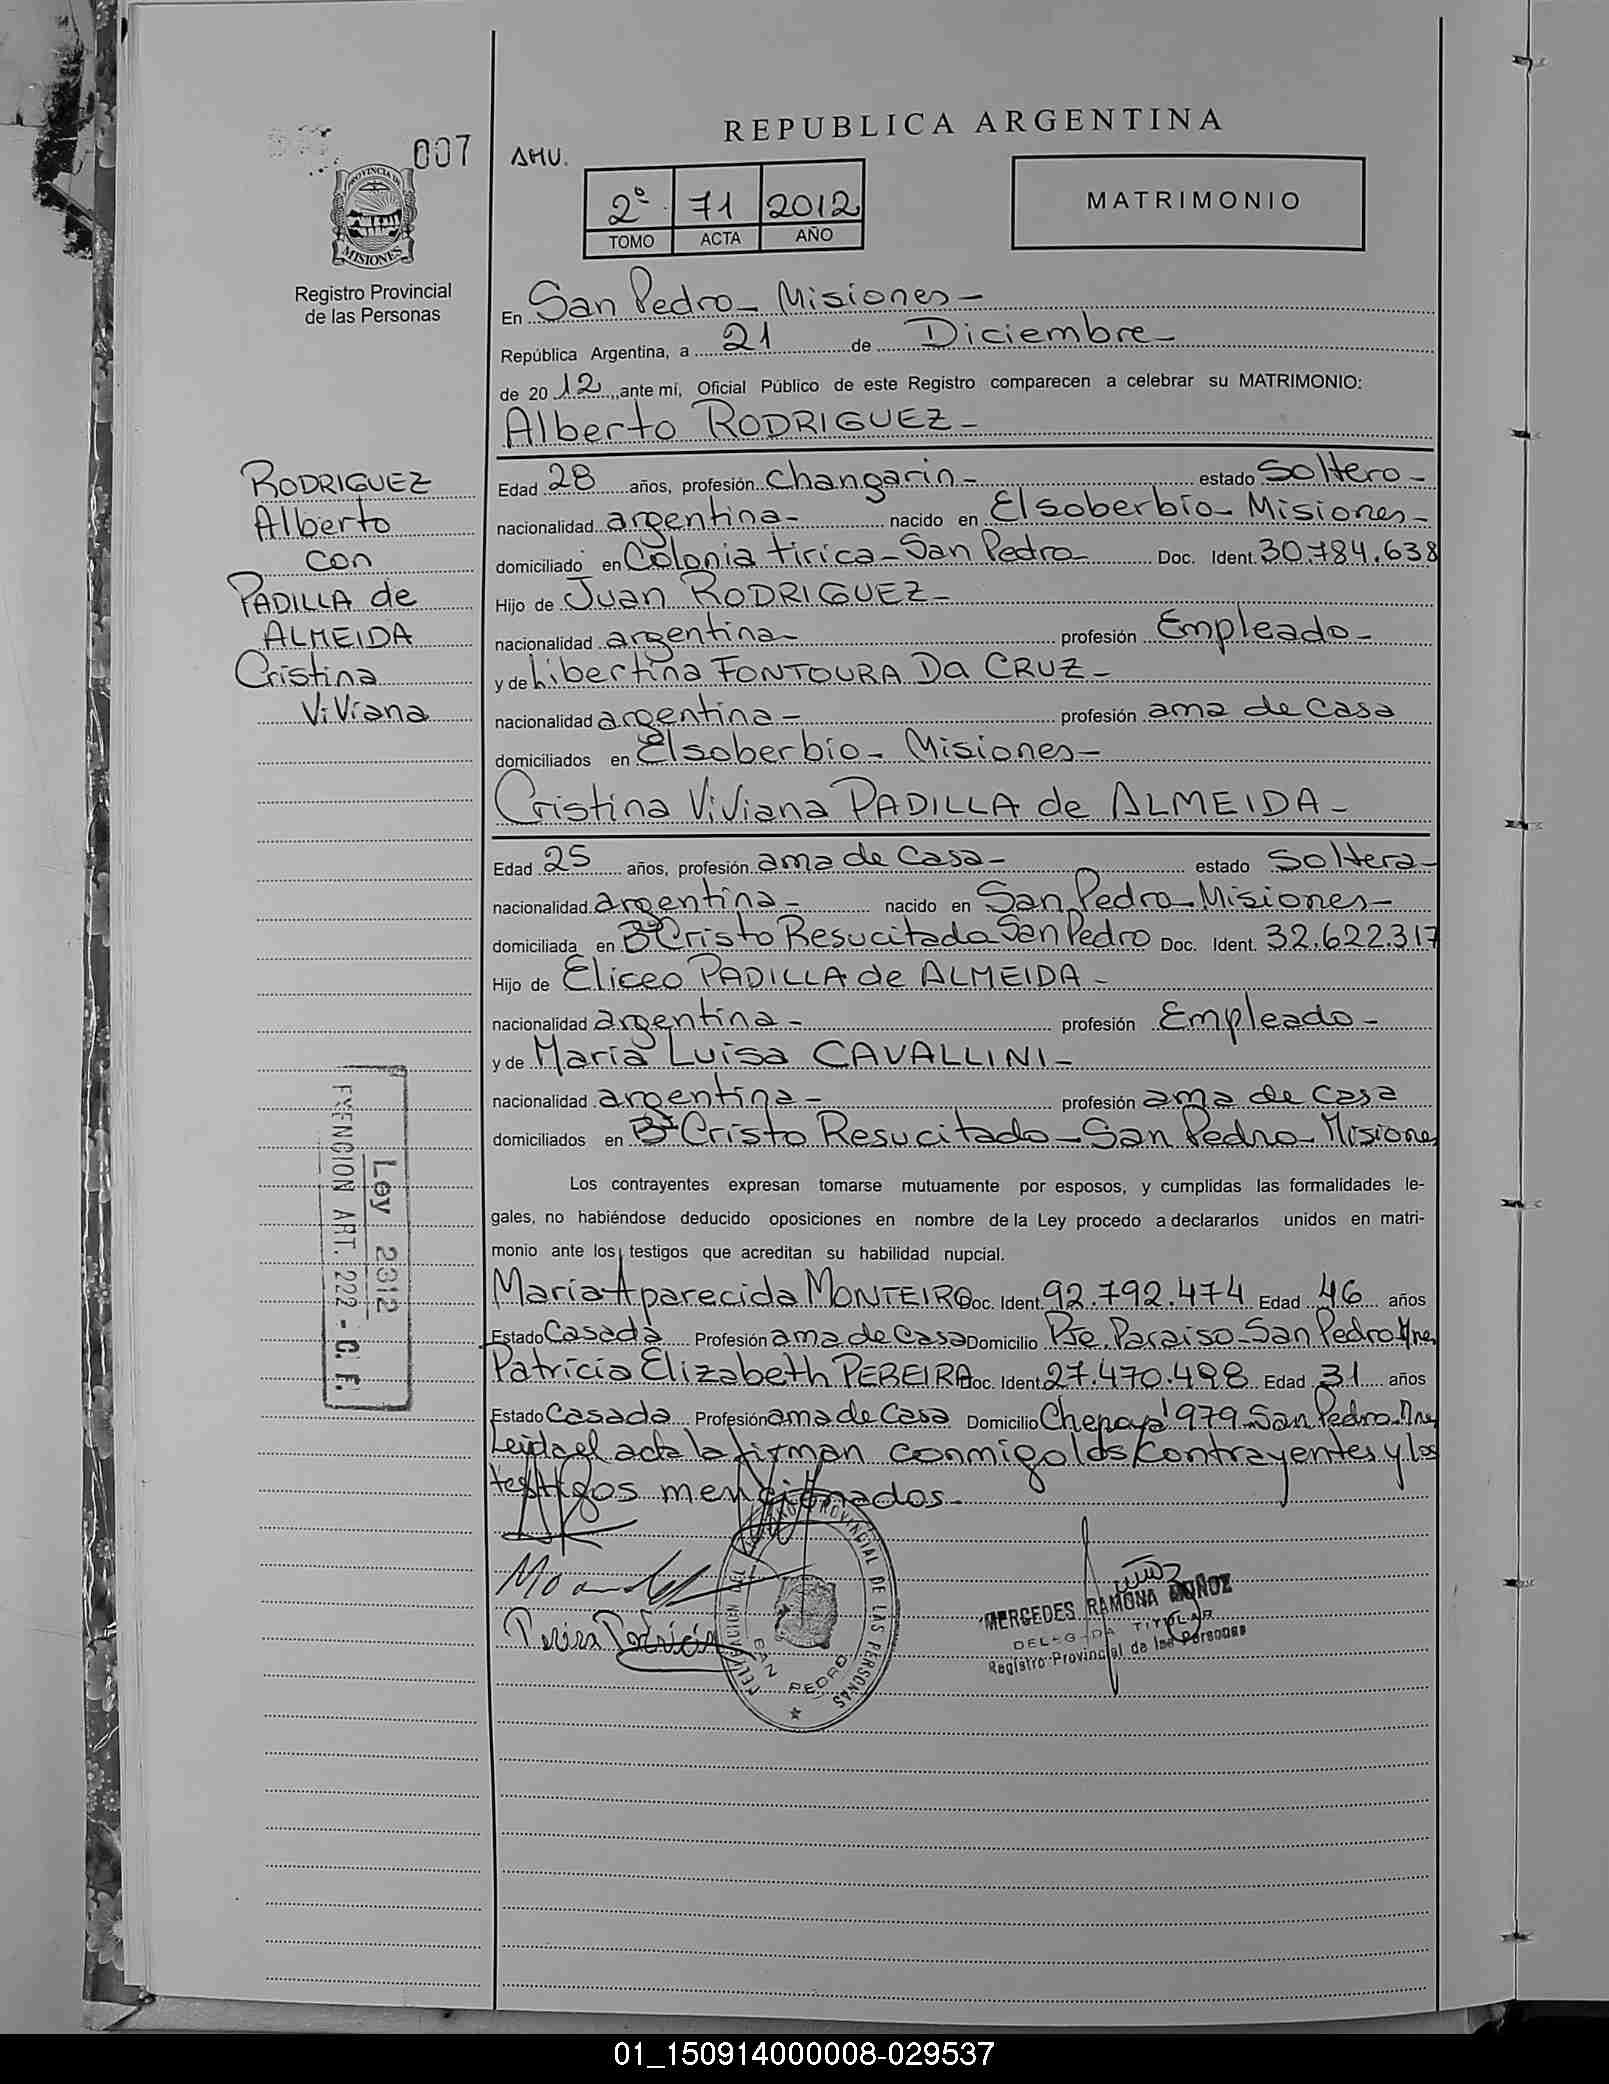 REPUBLICA ARGENTINA
007
AMU.
2º 71 2012
TOMO ACTA AÑO
MATRIMONIO
PROVINCIA DE
MISIONES
Registro Provincial
de las Personas
En San Pedro - Misiones -
República Argentina, a 21 de Diciembre -
de 2012, ante mí, Oficial Público de este Registro comparecen a celebrar su MATRIMONIO:
Alberto RODRIGUEZ -
RODRIGUEZ
Alberto
con
PADILLA de
ALMEIDA
Cristina
Viviana
Edad 28 años, profesión changarin - estado Soltero -
nacionalidad argentina - nacido en Elsoberbio - Misiones -
domiciliado en Colonia tirica - San Pedro - Doc. Ident. 30.784.638
Hijo de Juan RODRIGUEZ -
nacionalidad argentina - profesión Empleado -
y de Libertina FONTOURA Da CRUZ -
nacionalidad argentina - profesión ama de casa
domiciliados en Elsoberbio - Misiones -
Cristina Viviana PADILLA de ALMEIDA -
Edad 25 años, profesión ama de casa - estado Soltera -
nacionalidad argentina - nacido en San Pedro - Misiones -
domiciliada en Bº Cristo Resucitado San Pedro Doc. Ident. 32.622.317
Hijo de Eliceo PADILLA de ALMEIDA -
nacionalidad argentina - profesión Empleado -
y de Maria Luisa CAVALLINI -
nacionalidad argentina - profesión ama de casa
domiciliados en Bº Cristo Resucitado - San Pedro - Misiones
Los contrayentes expresan tomarse mutuamente por esposos, y cumplidas las formalidades le-
gales, no habiéndose deducido oposiciones en nombre de la Ley procedo a declararlos unidos en matri-
monio ante los testigos que acreditan su habilidad nupcial.
María Aparecida MONTEIRO Doc. Ident. 92.792.474 Edad 46 años
Estado Casada Profesión ama de casa Domicilio Pje. Paraiso - San Pedro Mnes
Patricia Elizabeth PEREIRA Doc. Ident. 27.470.498 Edad 31 años
Estado Casada Profesión ama de casa Domicilio Chepoya' 979 - San Pedro - Mnes
Leida el acta la firman conmigo los contrayentes y los
testigos mencionados -
Ley 2312
EXENCION ART. 222 - C. F.
REGISTRO PROVINCIAL DE LAS PERSONAS
DELEGACION
SAN PEDRO
Pereira Patricia
MERCEDES RAMONA MUÑOZ
DELEGADA TITULAR
Registro Provincial de las Personas
01_150914000008-029537